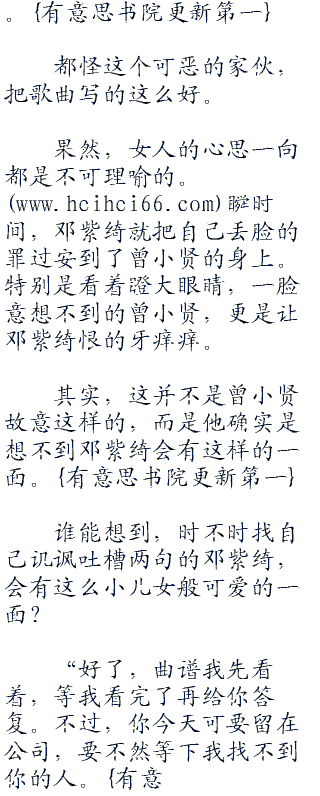 。{有意思书院更新第一}
都怪这个可恶的家伙，
把歌曲写的这么好。
果然，女人的心思一向
都是不可理喻的。
(www.hcihci66.com)瞬时
间，邓紫绮就把自己丢脸的
罪过安到了曾小贤的身上。
特别是看着瞪大眼睛，一脸
意想不到的曾小贤，更是让
邓紫绮恨的牙痒痒。
其实，这并不是曾小贤
故意这样的，而是他确实是
想不到邓紫绮会有这样的一
面。{有意思书院更新第一}
谁能想到，时不时找自
己讥讽吐槽两句的邓紫绮，
会有这么小儿女般可爱的一
面？
“好了，曲谱我先看
着，等我看完了再给你答
复。不过，你今天可要留在
公司，要不然等下我找不到
你的人。{有意